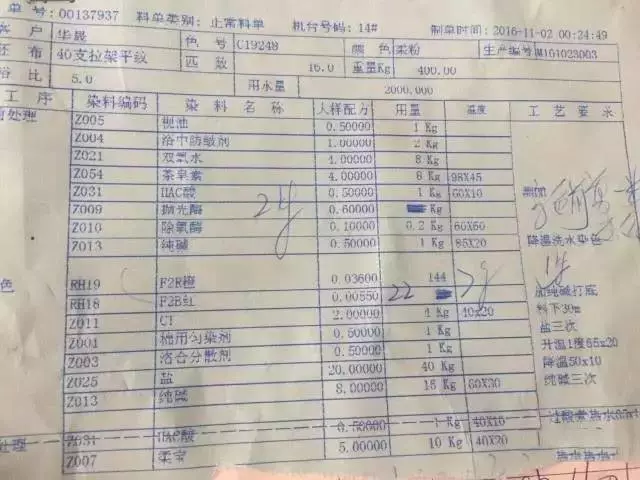 单号: 00137937 料单类别: 正常料单 机台号码: 14# 制单时间: 2016-11-02 00:24:49
客户 华晟 色号 C19248 颜色 柔粉 生产编号 M161023003
坯布 40支拉架平纹 匹数 16.0 重量Kg 400.00
浴比 5.0 用水量 2000.000
工序 染料编码 染料名称 大样配方 用量 温度 工艺要求
前处理 Z005 枧油 0.50000 1 Kg
Z004 浴中防皱剂 1.00000 2 Kg
Z021 双氧水 4.00000 8 Kg
Z054 茶皂素 4.00000 8 Kg 98X45
Z031 HAC酸 0.50000 1 Kg 60X10
Z009 抛光酶 0.60000 Kg
Z010 除氧酶 0.10000 0.2 Kg 60X60
Z013 纯碱 0.50000 1 Kg 85X20 降温洗水染色
色 RH19 F2R橙 0.03600 144
RH18 F2B红 0.00550 22 加纯碱打底
Z011 CT 2.00000 4 Kg 40x20 料下30m
Z001 棉用匀染剂 0.50000 1 Kg 盐三次
Z003 螯合分散剂 0.50000 1 Kg 升温1度65x20
Z025 盐 20.00000 40 Kg 降温50x10
Z013 纯碱 8.00000 16 Kg 60X30 纯碱三次
处理 Z031 HAC酸 0.50000 1 Kg 40X10
Z007 柔宝 5.00000 10 Kg 40X20